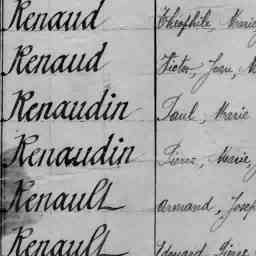 Renaud Théophile, Marie
Renaud Victor, Jean,
Renaudin Paul, Marie
Renaudin Pierre, Marie,
Renault Armand, Josep
Renault Edouard, Pierre